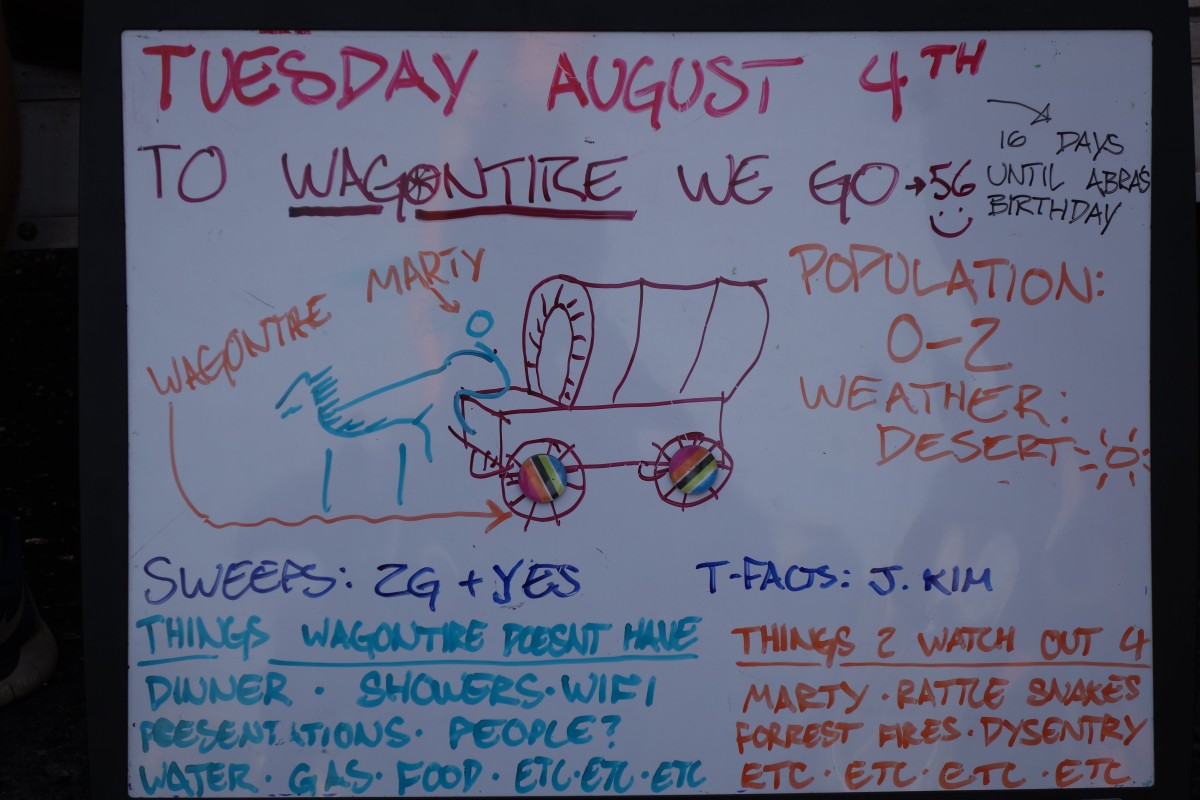 TUESDAY AUGUST 4TH
TO WAGONTIRE WE GO → 56
16 DAYS
UNTIL ABRAS
BIRTHDAY
MARTY
WAGONTIRE
POPULATION:
0-2
WEATHER:
DESERT
SWEEPS: ZG + YES
T-FACTS: J. KIM
THINGS WAGONTIRE DOESNT HAVE
DINNER · SHOWERS · WIFI
PRESENTATIONS · PEOPLE?
WATER · GAS · FOOD · ETC · ETC · ETC
THINGS 2 WATCH OUT 4
MARTY · RATTLE SNAKES
FORREST FIRES · DYSENTRY
ETC · ETC · ETC · ETC